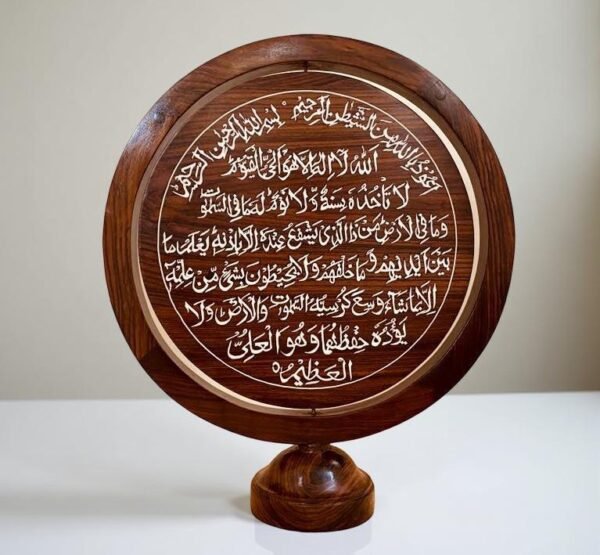 اعوذ بالله من الشيطن الرجيم بسم الله الرحمن الرحيم
الله لا اله الا هو الحي القيوم
لا تأخذه سنة ولا نوم له ما في السموات
وما في الارض من ذا الذي يشفع عنده الا باذنه يعلم ما
بين ايديهم وما خلفهم ولا يحيطون بشيء من علمه
الا بما شاء وسع كرسيه السموت والارض ولا
يؤده حفظهما وهو العلي
العظيم